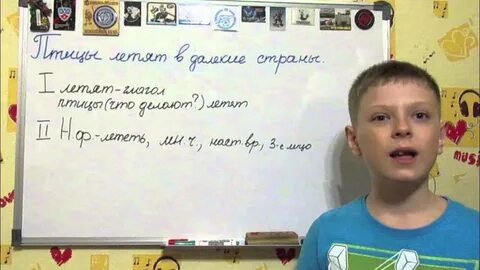 Птицы летят в далекие страны.
I летят-глагол
птицы(что делают?) летят
II Н.ф.-лететь, мн.ч., наст.вр, 3-е лицо
music